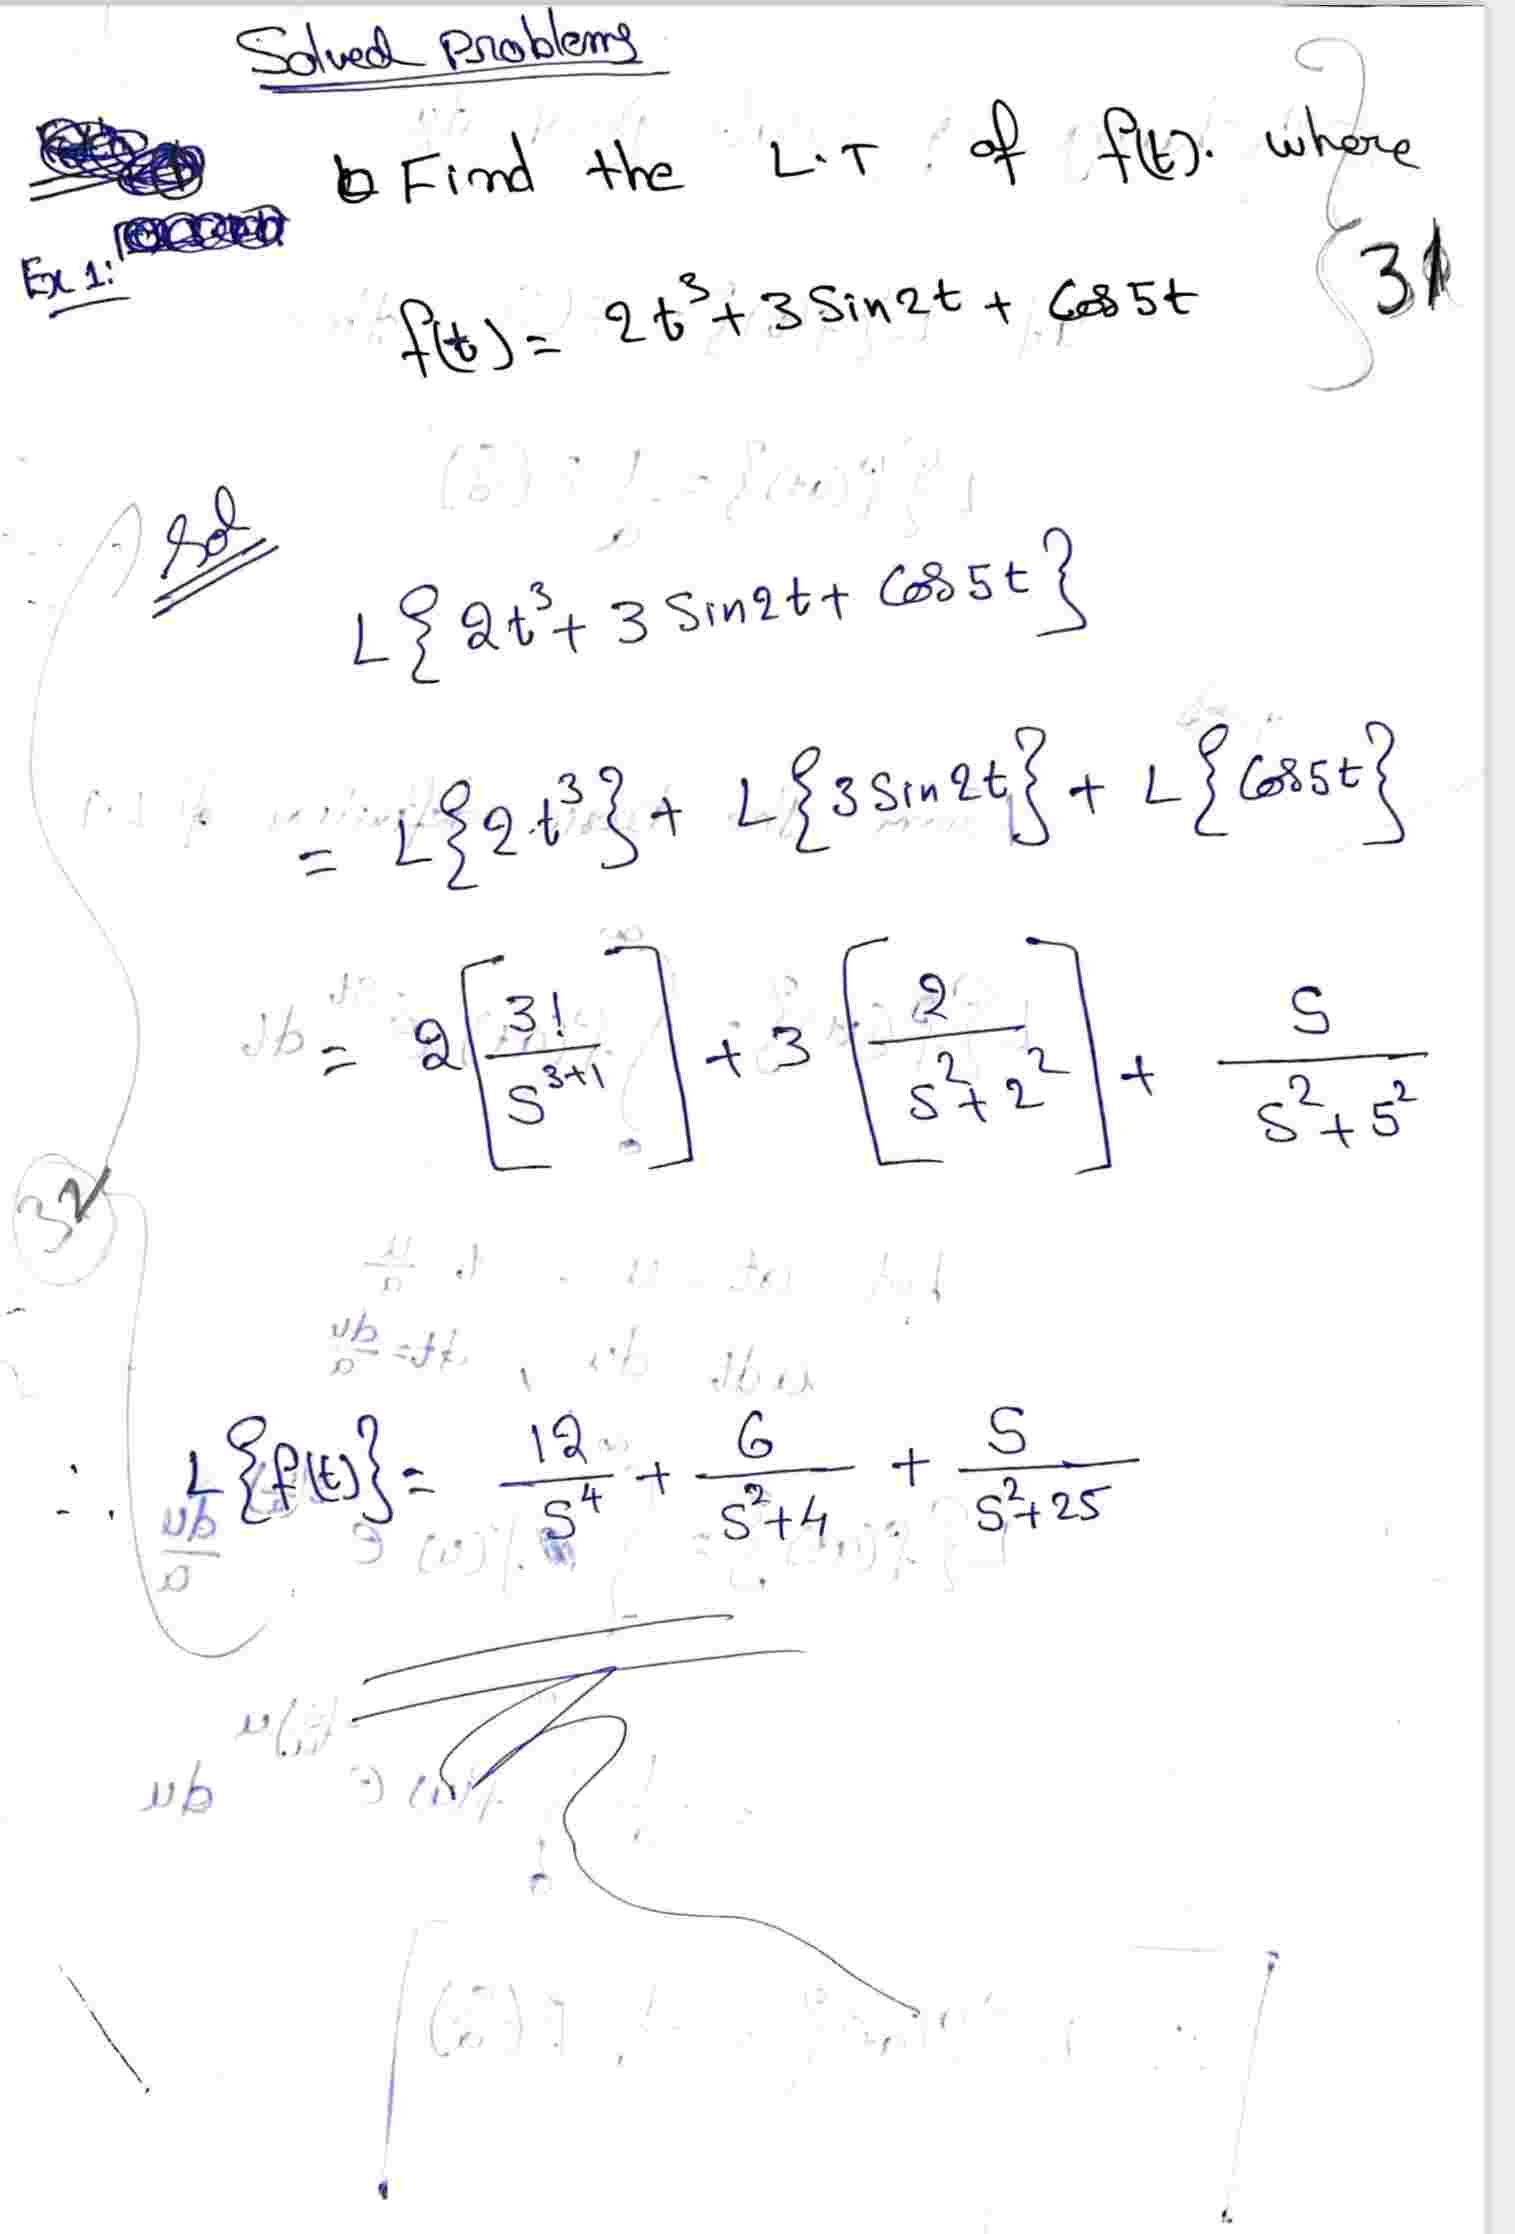 Solved Problems
Find the L.T of f(t). where
Ex 1:
31
f(t) = 2t³ + 3 Sin2t + Cos5t
Sol
L{2t³ + 3 Sin2t + Cos5t}
= L{2t³} + L{3 Sin2t} + L{Cos5t}
= 2[3!/S³⁺¹] + 3[2/S²+2²] + S/S²+5²
32
∴ L{f(t)} = 12/S⁴ + 6/S²+4 + S/S²+25